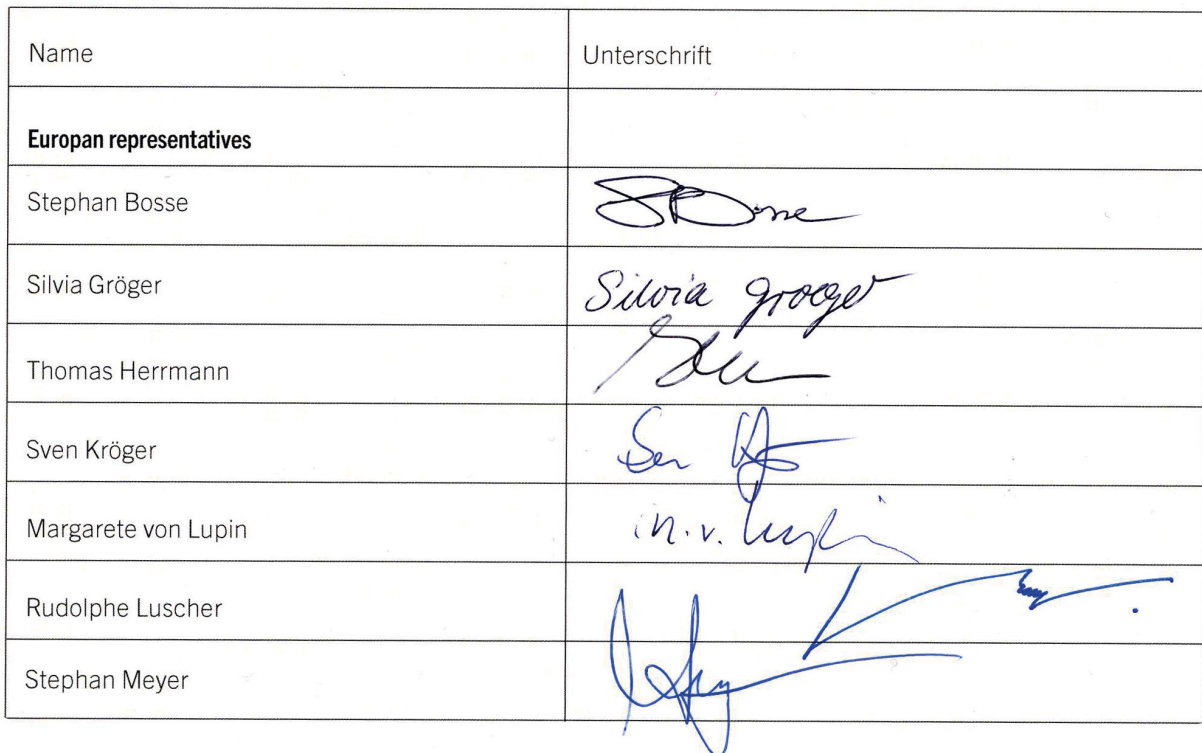 Name Unterschrift
Europan representatives
Stephan Bosse SBosse
Silvia Gröger Silvia Groeger
Thomas Herrmann
Sven Kröger
Margarete von Lupin M.v. Lupin
Rudolphe Luscher
Stephan Meyer